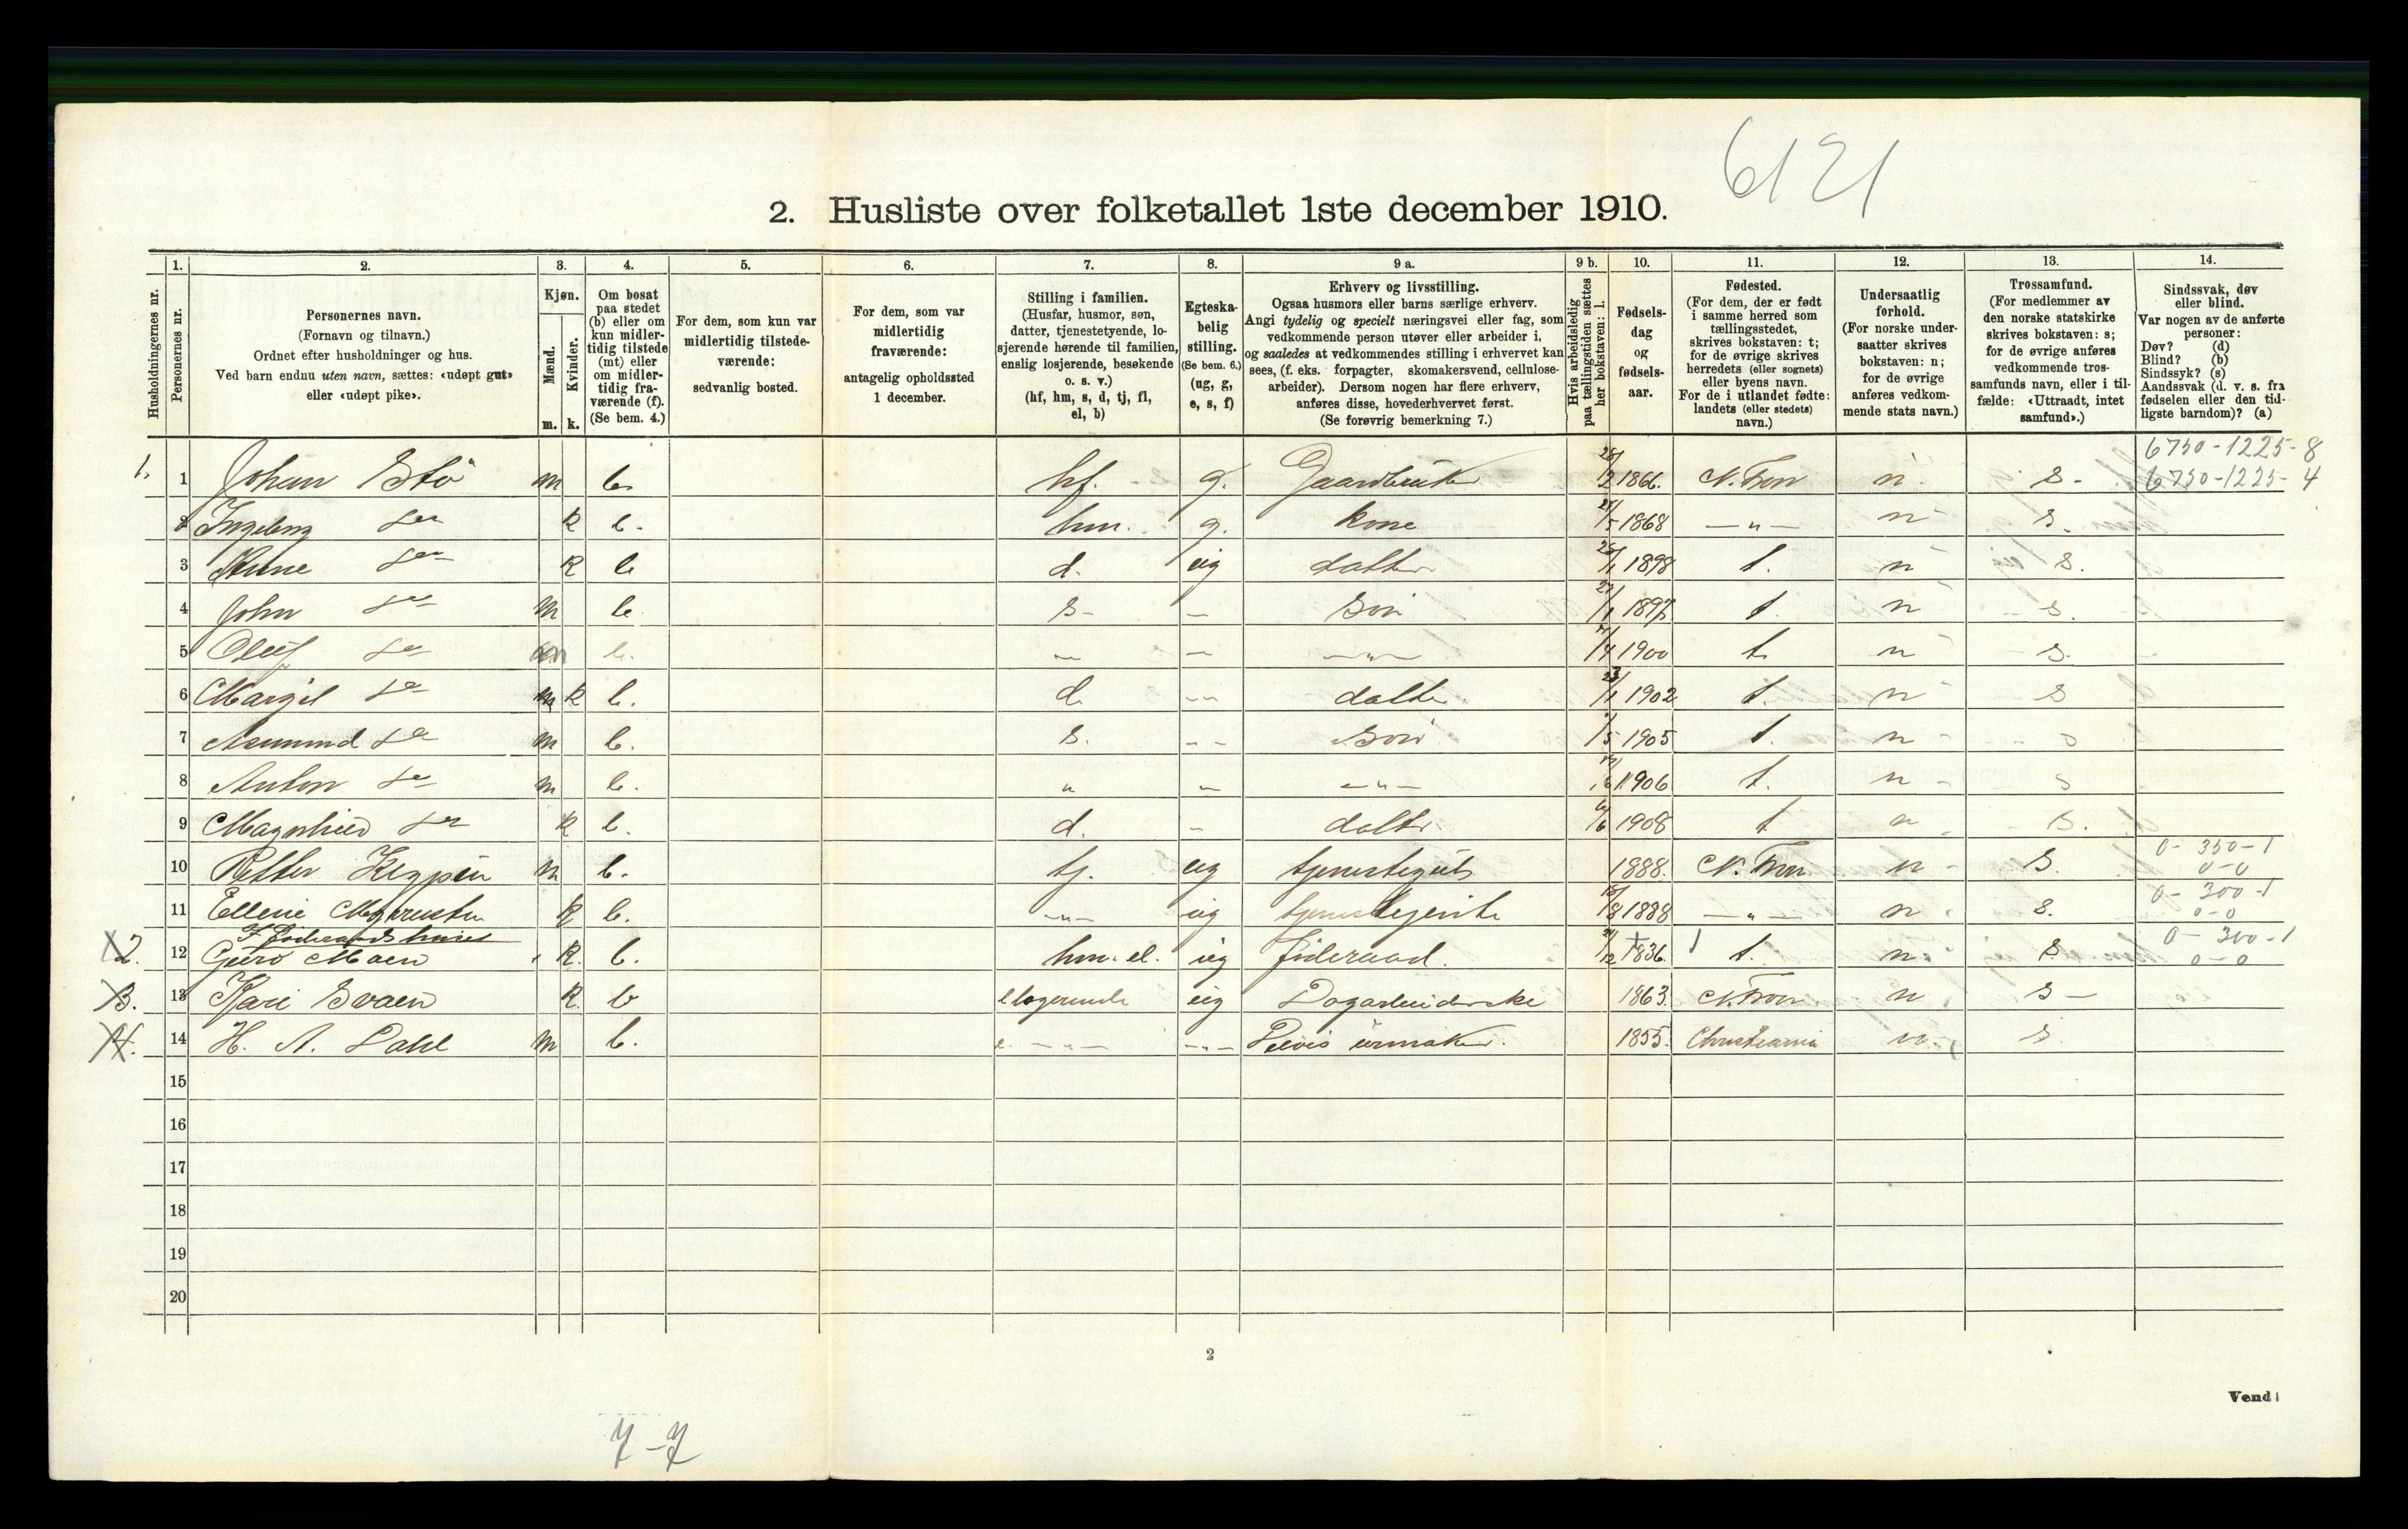 6121
2. Husliste over folketallet 1ste december 1910.
Husholdningernes nr.
1. Personernes nr.
2. Personernes navn.
(Fornavn og tilnavn.)
Ordnet efter husholdninger og hus.
Ved barn endnu uten navn, sættes: «udøpt gut»
eller «udøpt pike».
3. Kjøn.
Mænd. Kvinder.
m. k.
4. Om bosat
paa stedet
(b) eller om
kun midler-
tidig tilstede
(mt) eller
om midler-
tidig fra-
værende (f).
(Se bem. 4.)
5. For dem, som kun var
midlertidig tilstede-
værende:
sedvanlig bosted.
6. For dem, som var
midlertidig
fraværende:
antagelig opholdssted
1 december.
7. Stilling i familien.
(Husfar, husmor, søn,
datter, tjenestetyende, lo-
sjerende hørende til familien,
enslig losjerende, besøkende
o. s. v.)
(hf, hm, s, d, tj, fl,
el, b)
8. Egteska-
belig
stilling.
(Se bem. 6.)
(ug, g,
e, s, f)
9 a. Erhverv og livsstilling.
Ogsaa husmors eller barns særlige erhverv.
Angi tydelig og specielt næringsvei eller fag, som
vedkommende person utøver eller arbeider i,
og saaledes at vedkommendes stilling i erhvervet kan
sees, (f. eks. forpagter, skomakersvend, cellulose-
arbeider). Dersom nogen har flere erhverv,
anføres disse, hovederhvervet først.
(Se forøvrig bemerkning 7.)
9 b. Hvis arbeidsledig
paa tællingstiden sættes
her bokstaven: l.
10. Fødsels-
dag
og
fødsels-
aar.
11. Fødested.
(For dem, der er født
i samme herred som
tællingsstedet,
skrives bokstaven: t;
for de øvrige skrives
herredets (eller sognets)
eller byens navn.
For de i utlandet fødte:
landets (eller stedets)
navn.)
12. Undersaatlig
forhold.
(For norske under-
saatter skrives
bokstaven: n;
for de øvrige
anføres vedkom-
mende stats navn.)
13. Trossamfund.
(For medlemmer av
den norske statskirke
skrives bokstaven: s;
for de øvrige anføres
vedkommende tros-
samfunds navn, eller i til-
fælde: «Uttraadt, intet
samfund».)
14. Sindssvak, døv
eller blind.
Var nogen av de anførte
personer:
Døv? (d)
Blind? (b)
Sindssyk? (s)
Aandssvak (d. v. s. fra
fødselen eller den tid-
ligste barndom)? (a)
6750-1225-8
1. 1 Johan Stö m b. hf. g. Gaardbruker 1866. N. Fron n. s. 6750-1225-4
2 Ingeborg k b. hm. g. Kone 1868 —„— n s.
3 k b d. ug datter 1898 t. n s.
4 John m b s — Sön 1897 t. n s.
5 Oluf m b. — — —„— 1900 t. n s.
6 Margit k b. d. — datter 1902 t. n s
7 Asmund m b. s. — Sön 1905 t. n s
8 Anton m b. „ — —„— 1906 t. n s
9 Magnhild k b. d. — datter 1908 t n s.
0-350-1
10 Petter Klypen m b. tj. ug tjenestegut 1888. N. Fron n s. 0-0
0-300-1
11 k b. —„— ug tjenestejente 1888 —„— n s. 0-0
I Föderaadshuset 0-300-1
2. 12 Guro Moen k. b. hm. el. ug Föderaad. 1836. t. n. s 0-0
3. 13 Kari Svaen k. b el logerende ug Dagarbeiderske 1863. N. Fron n s —
4. 14 H. A. Dahl m b. e. —„— —„— 1855. Christiania n. s.
15
16
17
18
19
20
2
Vend!
7-7